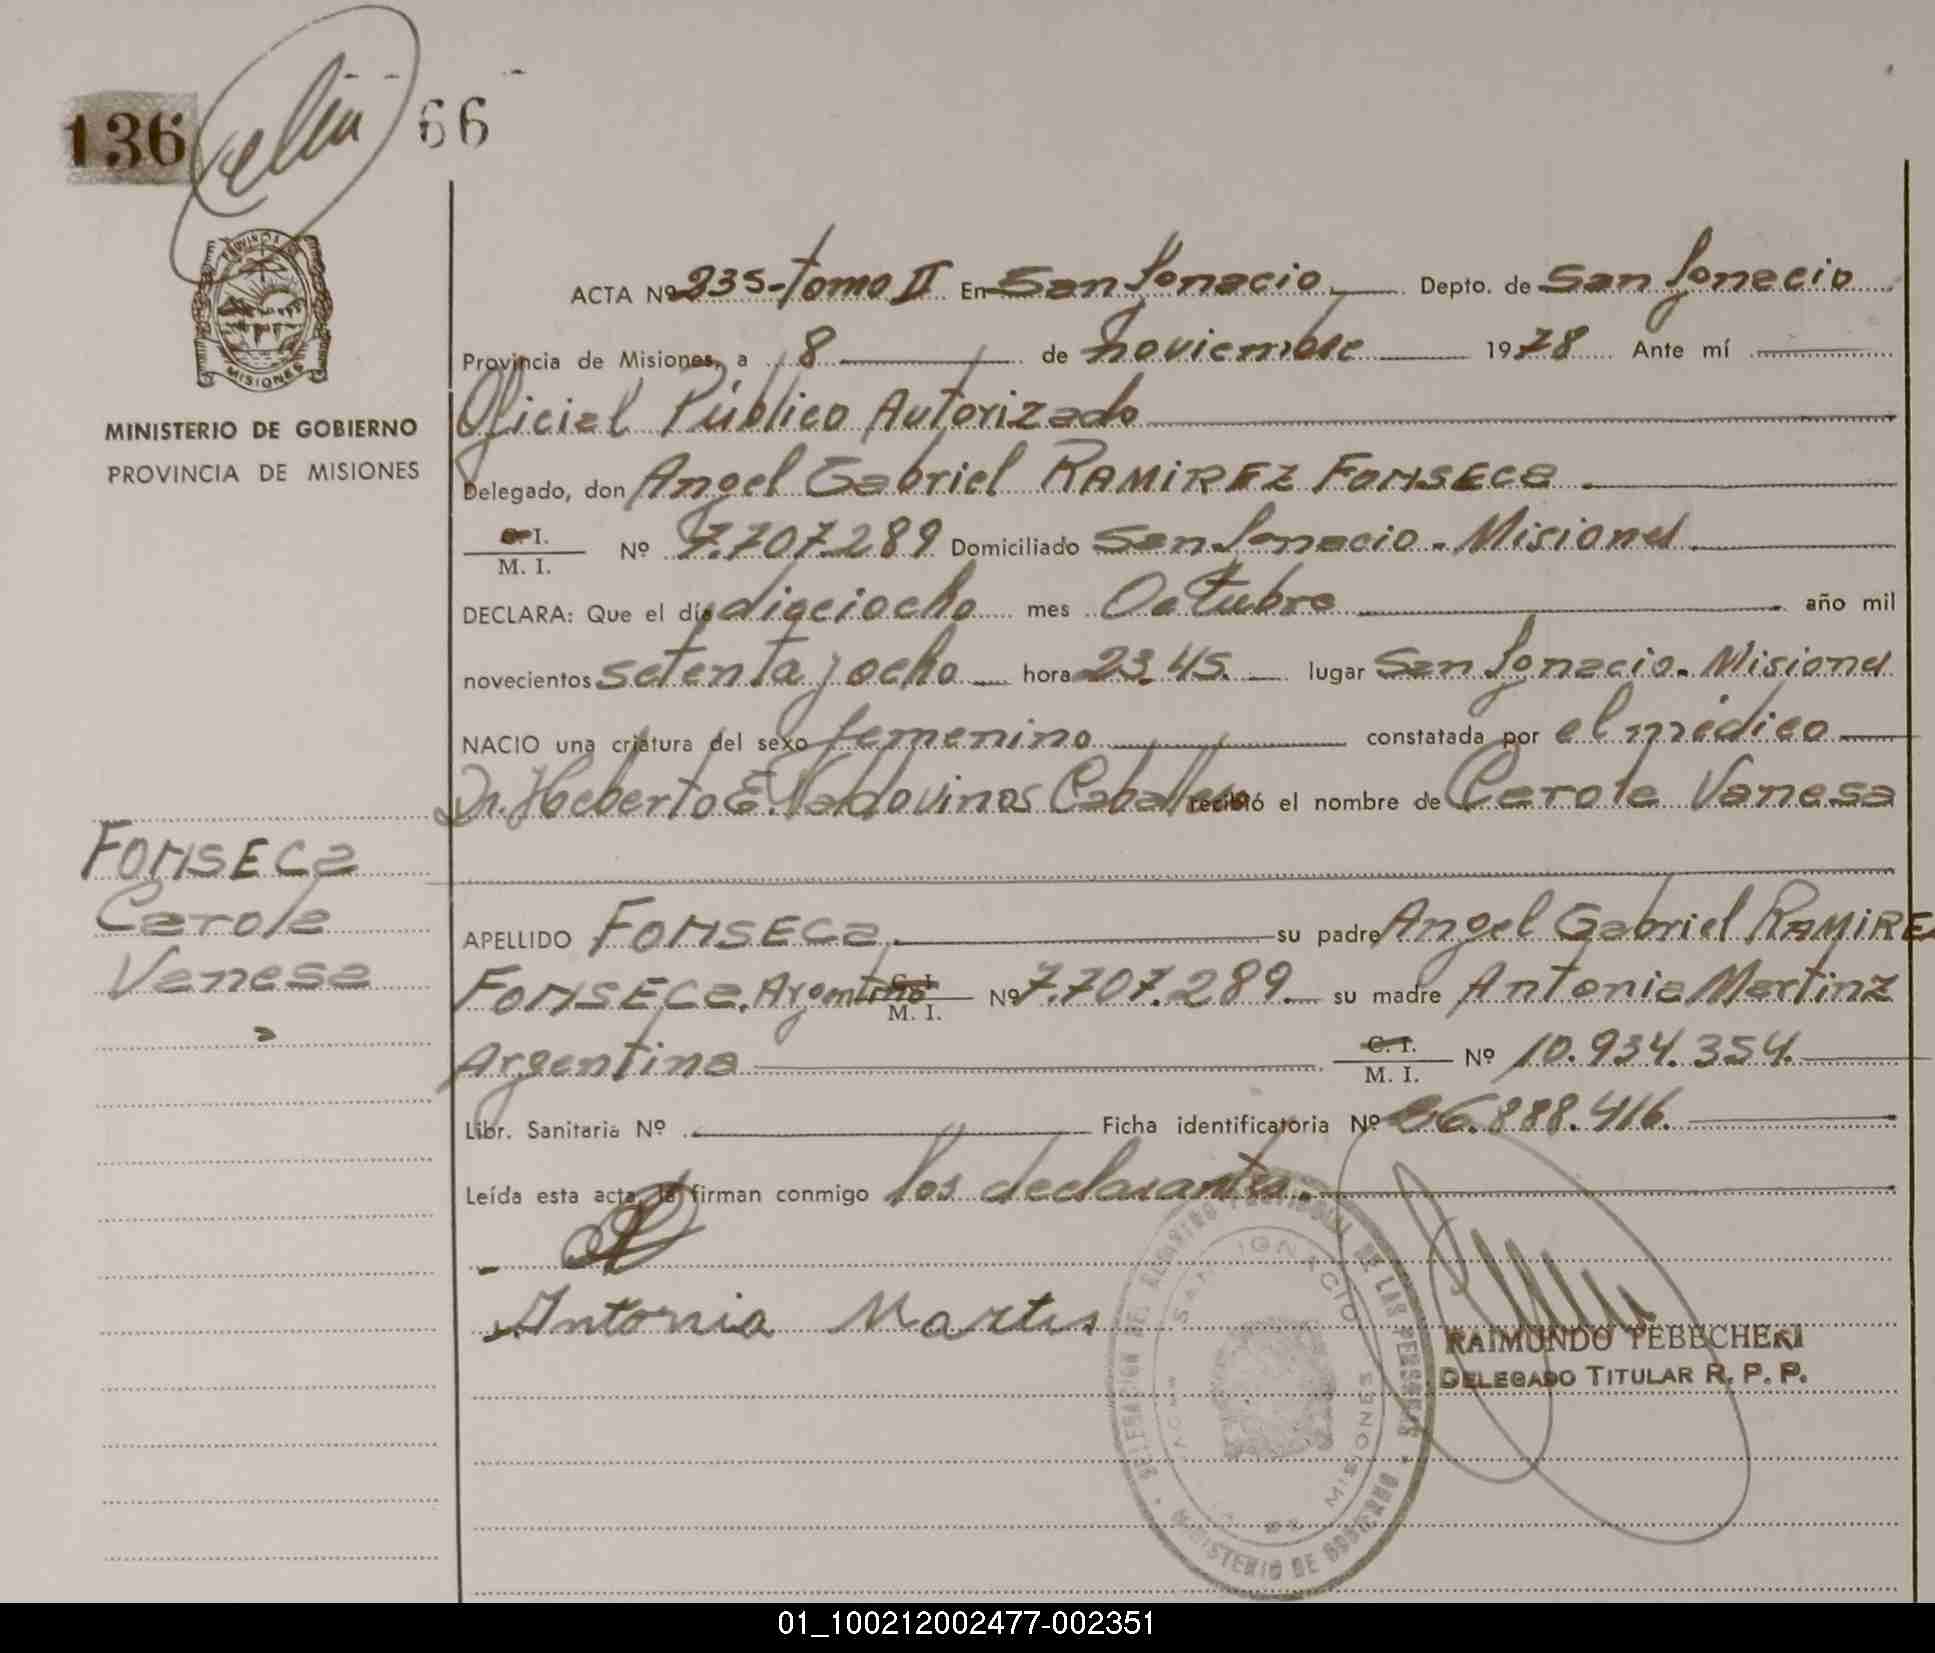 136 66
PROVINCIA DE
MISIONES
MINISTERIO DE GOBIERNO
PROVINCIA DE MISIONES
ACTA Nº 235-tomo II En San Ignacio Depto. de San Ignacio
Provincia de Misiones, a 8 de noviembre 1978 Ante mí
Oficial Público Autorizado
Delegado, don Angel Gabriel RAMIREZ FONSECA
C. I.
M. I.
Nº 7.707.289 Domiciliado San Ignacio - Misiones
DECLARA: Que el día dieciocho mes Octubre año mil
novecientos setenta y ocho hora 23.45. lugar San Ignacio - Misiones
NACIO una criatura del sexo femenino constatada por el médico
Dr. Heberto E. Valdovinos Caballero recibió el nombre de Carola Vanesa
FONSECA
Carola
Vanesa
APELLIDO FONSECA su padre Angel Gabriel RAMIREZ
FONSECA. Argentino C. I. M. I. Nº 7.707.289. su madre Antonia Martinz
Argentina C. I. M. I. Nº 10.934.354.
Libr. Sanitaria Nº Ficha identificatoria Nº 26.888.416.
Leída esta acta, la firman conmigo los declarantes.
Antonia Martis
DELEGACION DEL REGISTRO PROVINCIAL DE LAS PERSONAS
SAN IGNACIO
MISIONES
MINISTERIO DE GOBIERNO
RAIMUNDO TEBECHERI
DELEGADO TITULAR R. P. P.
01_100212002477-002351